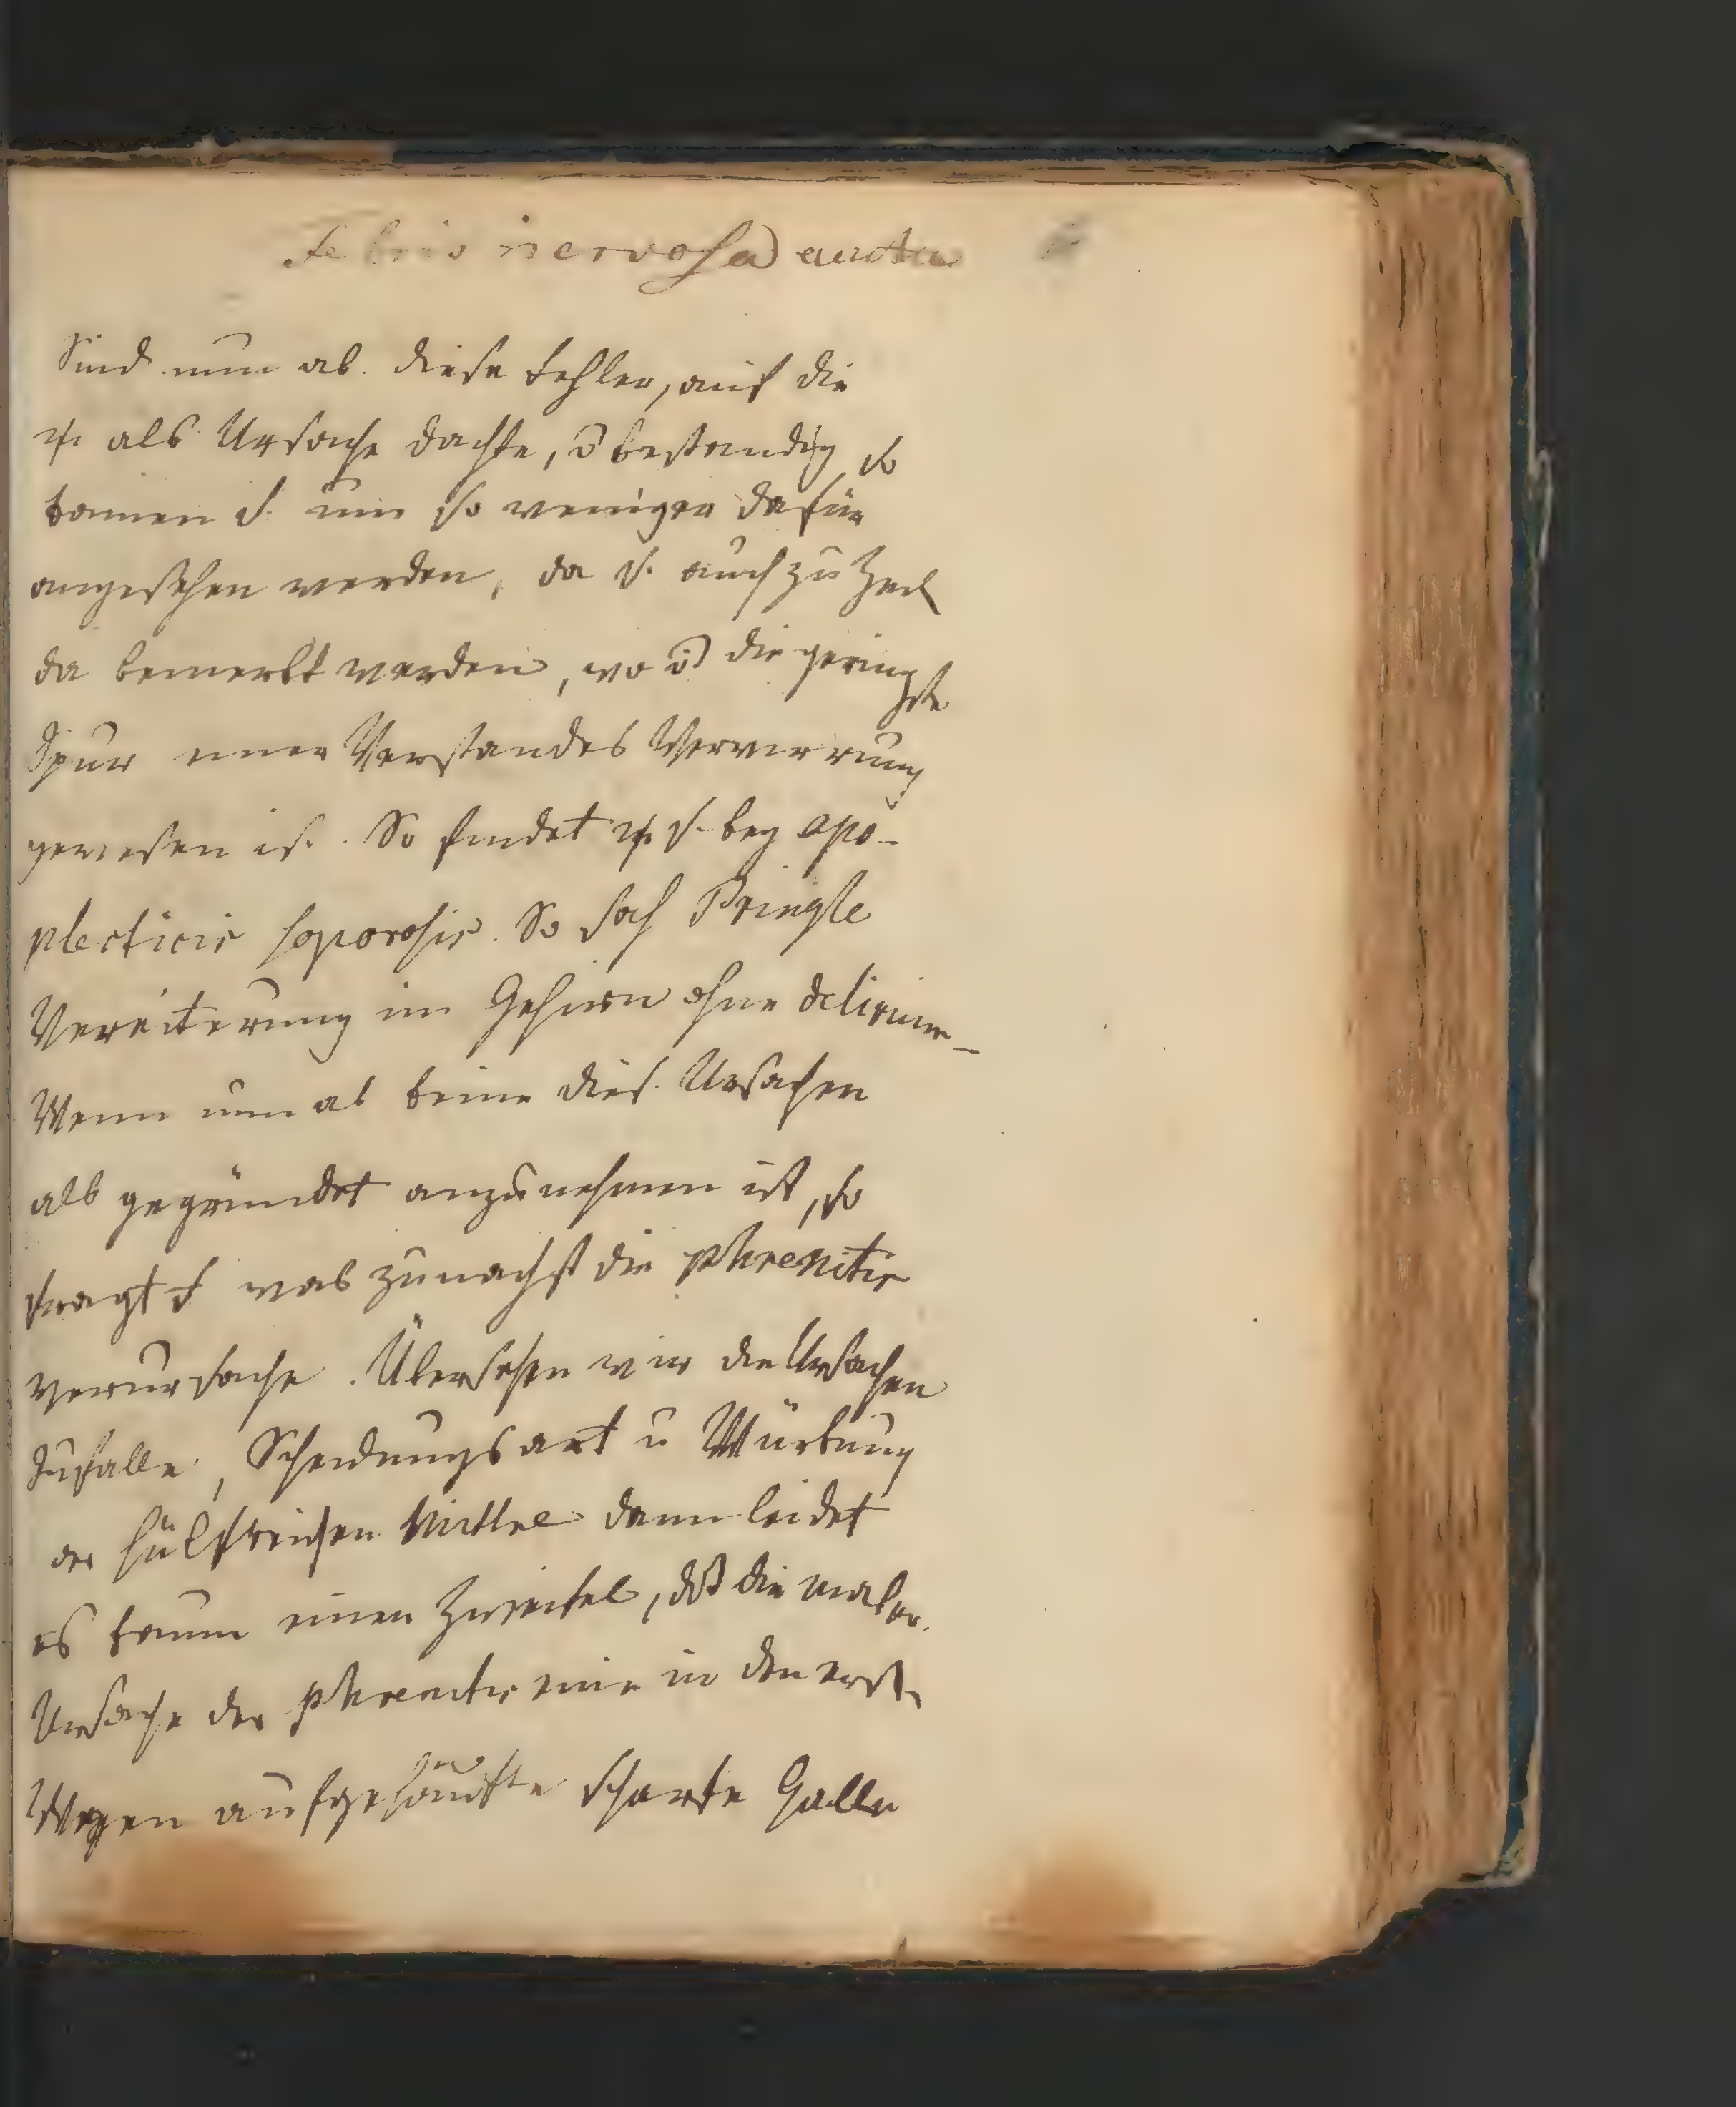 Febris nervosa acuta
Sind nun ab. diese Fehler, auf die
als Ursache dachte, bestandig so
konnen s. um so weniger dafür
angesehen werden, da s. auch zu Zeit
da bemerkt werden, wo die geringste
Spur einer Verstandes Verwirrung
gewesen is. So findet s. bey apo-
plecticis soporosis. So sah Pringle
Vereiterung im Gehirn ohne delirium_
Wenn nun ab keine dies. Ursachen
als gegründet anzunehmen ist, so
fragt was zunachst die Phrenitis
verursache. Übersehen wir die Ursachen
Zufalle, Scheidungsart u Würkung
der hülfreichen Mittel dann leidet
es kaum einen Zweifel, dß die mater.
Ursache der Phrenitis eine in den erst
Wegen aufgehäufte scharfe Galle